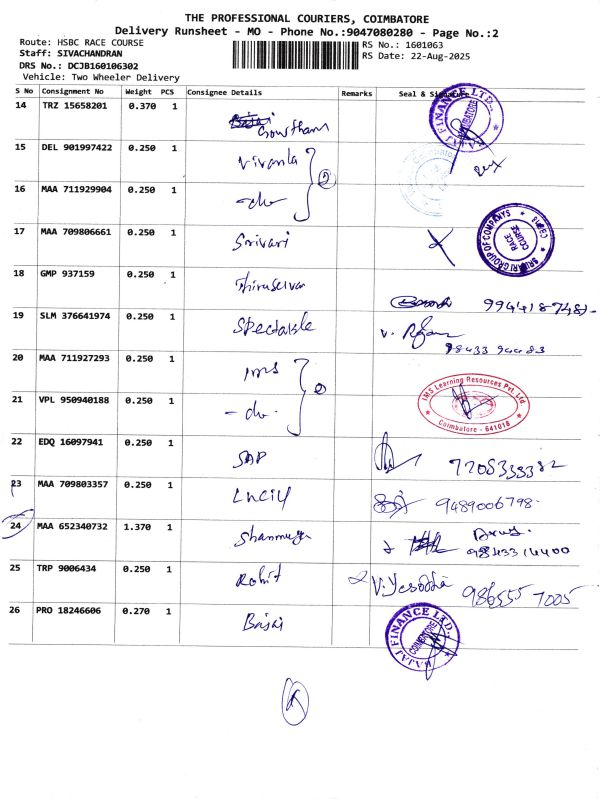 THE PROFESSIONAL COURIERS, COIMBATORE
Delivery Runsheet - MO - Phone No.:9047080280 - Page No.:2
Route: HSBC RACE COURSE
RS No.: 1601063
Staff: SIVACHANDRAN
RS Date: 22-Aug-2025
DRS No.: DCJB160106302
Vehicle: Two Wheeler Delivery
S No Consignment No Weight PCS Consignee Details Remarks Seal & Signature
14 TRZ 15658201 0.370 1 Gowtham
BAJAJ FINANCE LTD. COIMBATORE
15 DEL 901997422 0.250 1 Vivanta
16 MAA 711929904 0.250 1 -do- 2
17 MAA 709806661 0.250 1 Srivari
SRIVARI GROUP OF COMPANYS RACE COURSE CBE-18
18 GMP 937159 0.250 1 Thiruselvar
9944187481-
19 SLM 376641974 0.250 1 Spectable V.
98433 94483
20 MAA 711927293 0.250 1 IMS
21 VPL 950940188 0.250 1 -do- 2
IMS Learning Resources Pvt. Ltd Coimbatore - 641018
22 EDQ 16097941 0.250 1 SAP 7708333382
23 MAA 709803357 0.250 1 Lucily 9489006798-
24 MAA 652340732 1.370 1 Shanmuga
9843314400
25 TRP 9006434 0.250 1 Rohit V. Yesodha 986555 7005
26 PRO 18246606 0.270 1 Bajaj
BAJAJ FINANCE LTD. COIMBATORE